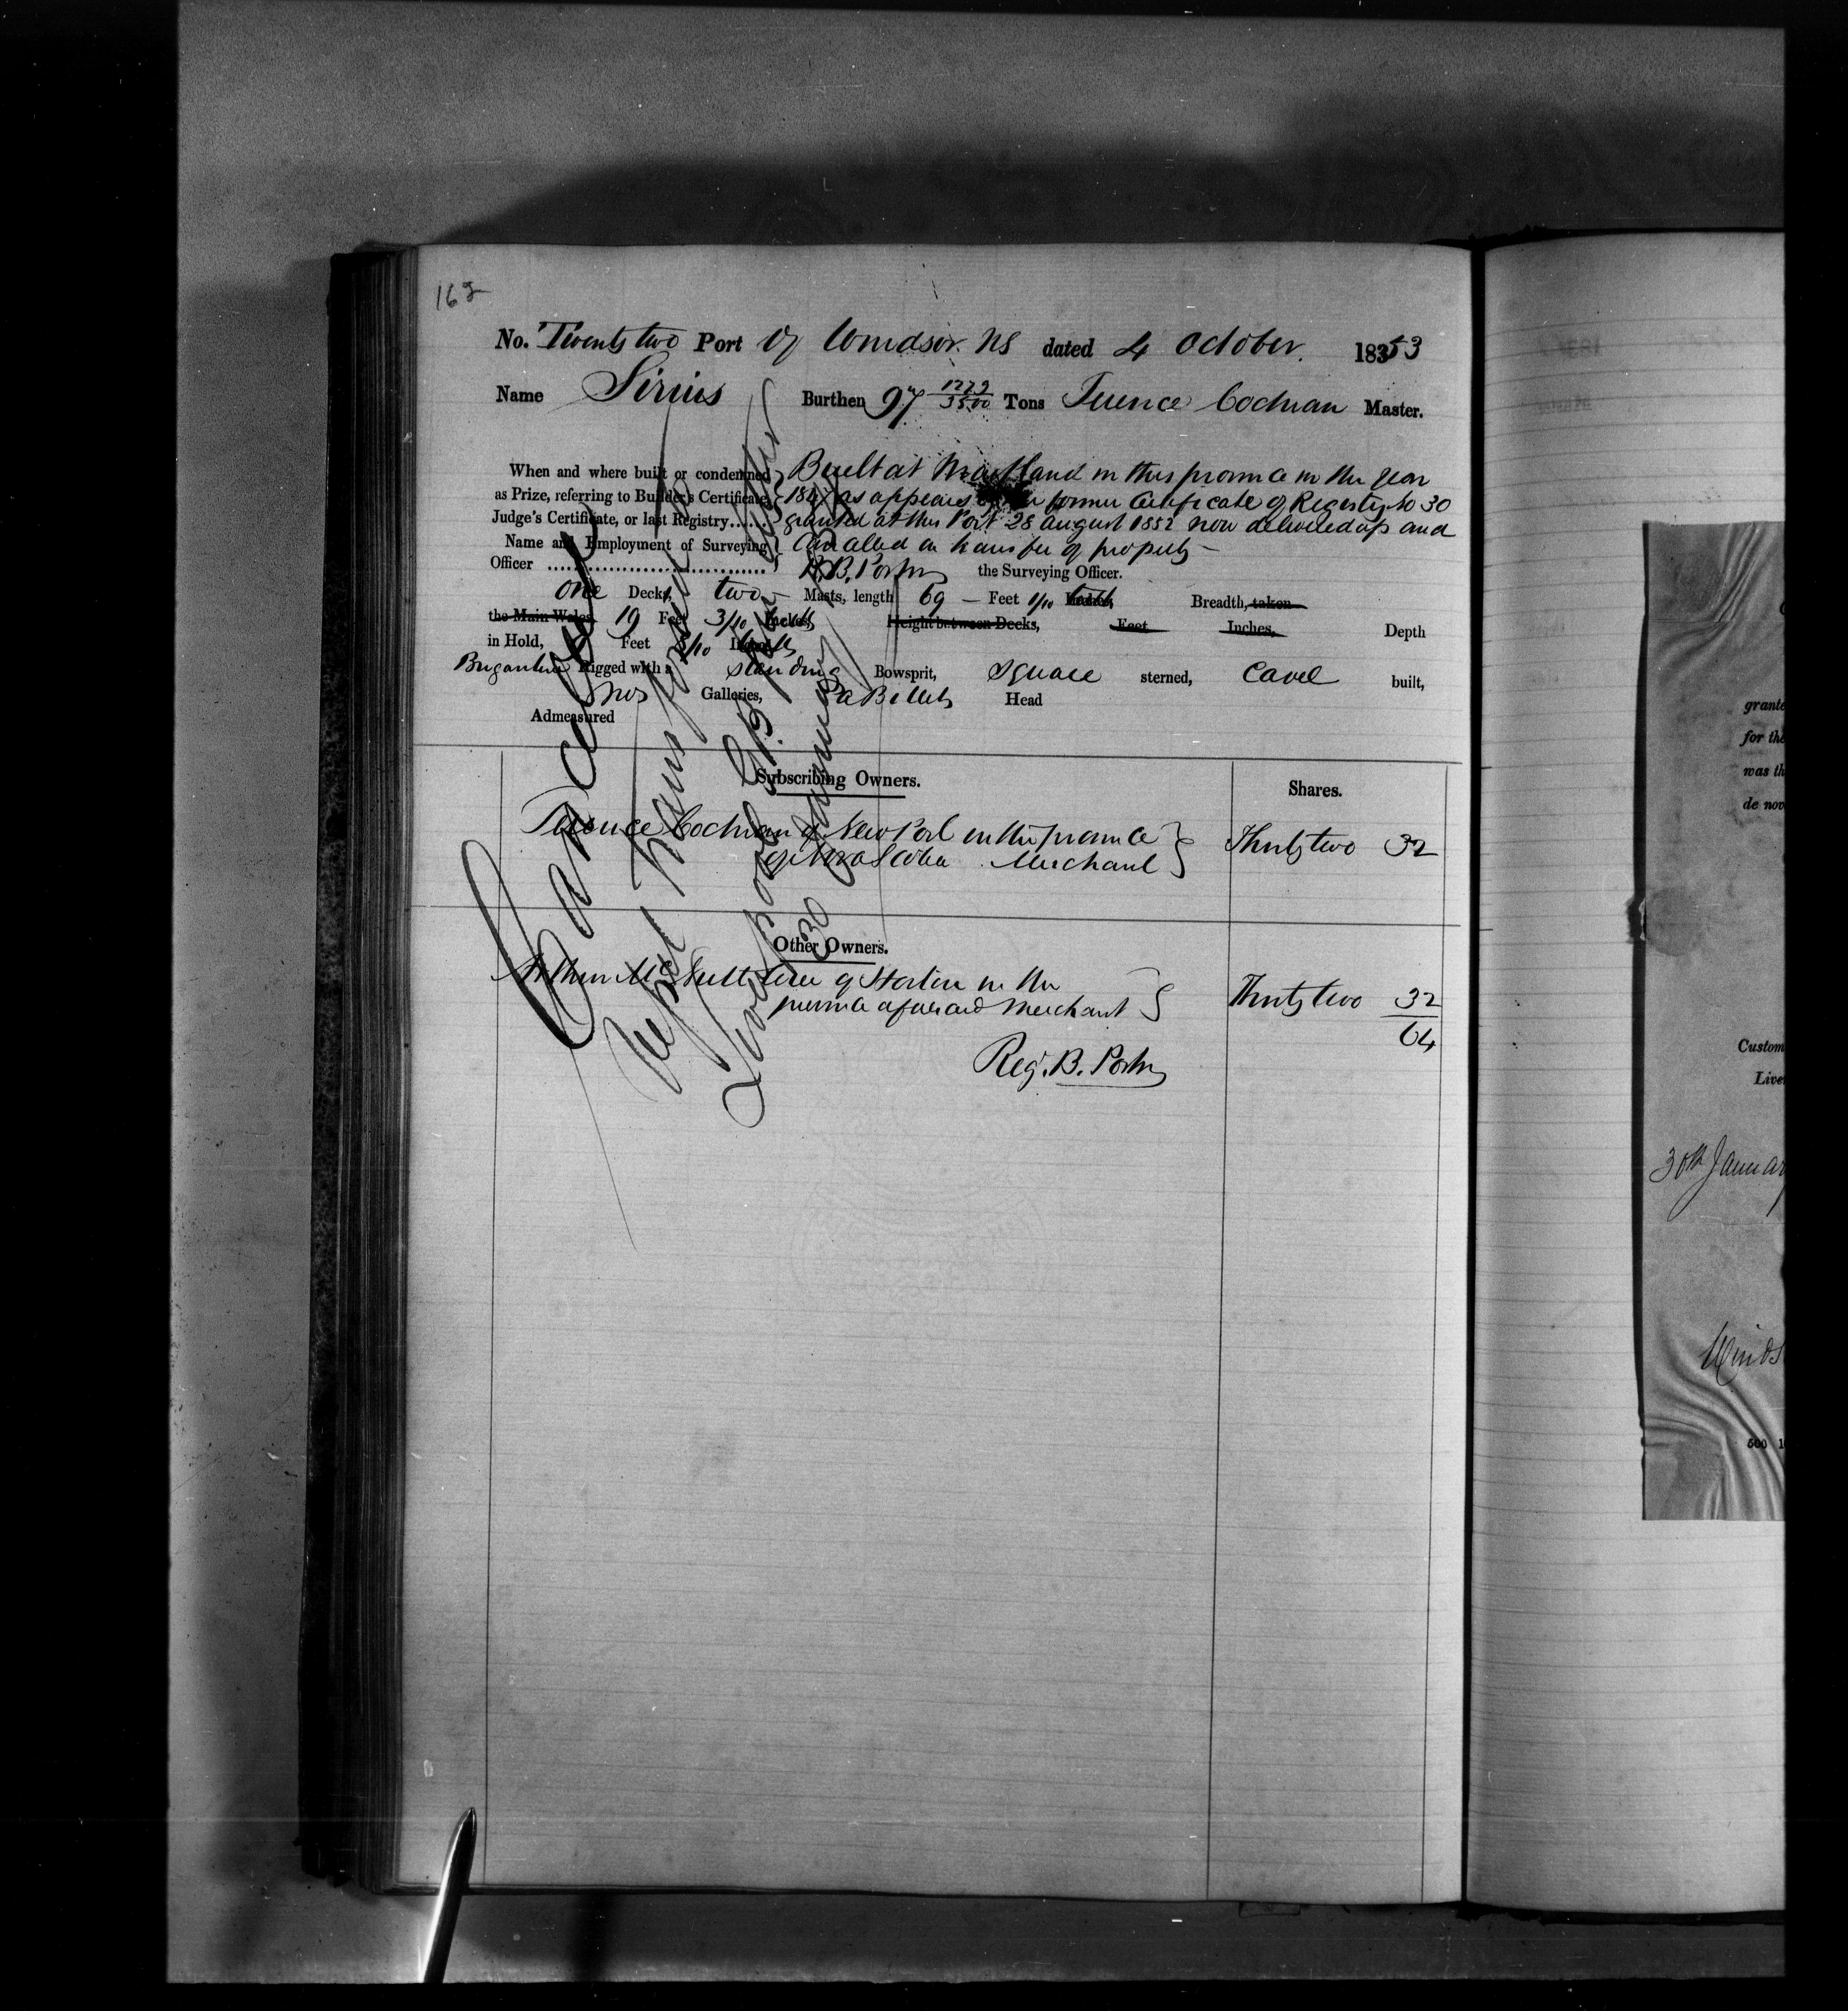 162
No. Twenty two Port of Windsor. NS dated 4 October. 18353
Name Sirius Burthen 97 1272/3500 Tons Terence Cochran Master.
When and where built or condemned as Prize, referring to Builder's Certificate, Judge's Certificate, or last Registry......
Built at Maitland in this province in the year
184 as appears former Certificate of Registry No 30
granted at this Port 28 August 1852 now delivered up and
Cancelled on transfer of property —
Name and Employment of Surveying Officer ..............................
R. B. Porter the Surveying Officer.
one Decks, two — Masts, length 69 — Feet 1/10 tenths Breadth, taken
the Main Wales, 19 Feet 3/10 tenths Height between Decks, Feet Inches, Depth
in Hold, Feet 8/10 tenths
Brigantine Rigged with a standing Bowsprit, Square sterned, Carvel built,
no Galleries, a Billet Head
Admeasured
Subscribing Owners.
Shares.
Terence Cochran of NewPort in the province
of Nova Scotia Merchant
Thirty two 32
Other Owners.
Arthur McNutt of Horton in the
province aforesaid Merchant
Thirty two 32
64
Reg. B. Porter
Cancelled
Liverpool G.B.
30 January
grante
for the
was th
de nov
Custom
Live
30th Januar
Winds
500 1